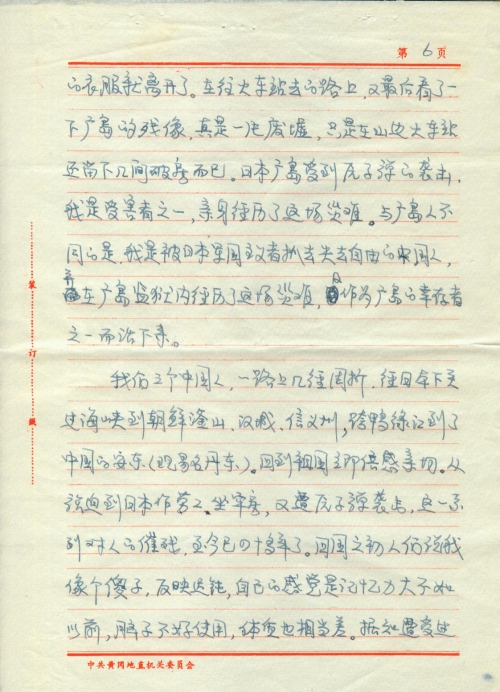 第 6 页
的衣服就离开了。在往火车站去的路上,又最后看了一
下广岛的残像,真是一片废墟,只是在山边火车站
还留下几间破房而已。日本广岛受到原子弹的袭击,
我是受害者之一,亲身经历了这场灾难。与广岛人不
同的是,我是被日本军国主义者抓去失去自由的中国人,
并在广岛监狱内经历了这场灾难,作为广岛的幸存者
之一而活下来。
我们三个中国人,一路上几经周折,经日本下关
过海峡到朝鲜釜山、汉城、信义州,跨鸭绿江到了
中国的安东(现易名丹东)。回到祖国立即倍感亲切。从
强迫到日本作劳工,坐牢房,又遭原子弹袭击,这一系
列对人的催残,至今已四十多年了。回国之初人们说我
像个傻子,反映迟钝,自己的感觉是记忆力大不如
以前,脑子不好使用,体质也相当差。据知遭受过
中共黄冈地直机关委员会
装
订
线